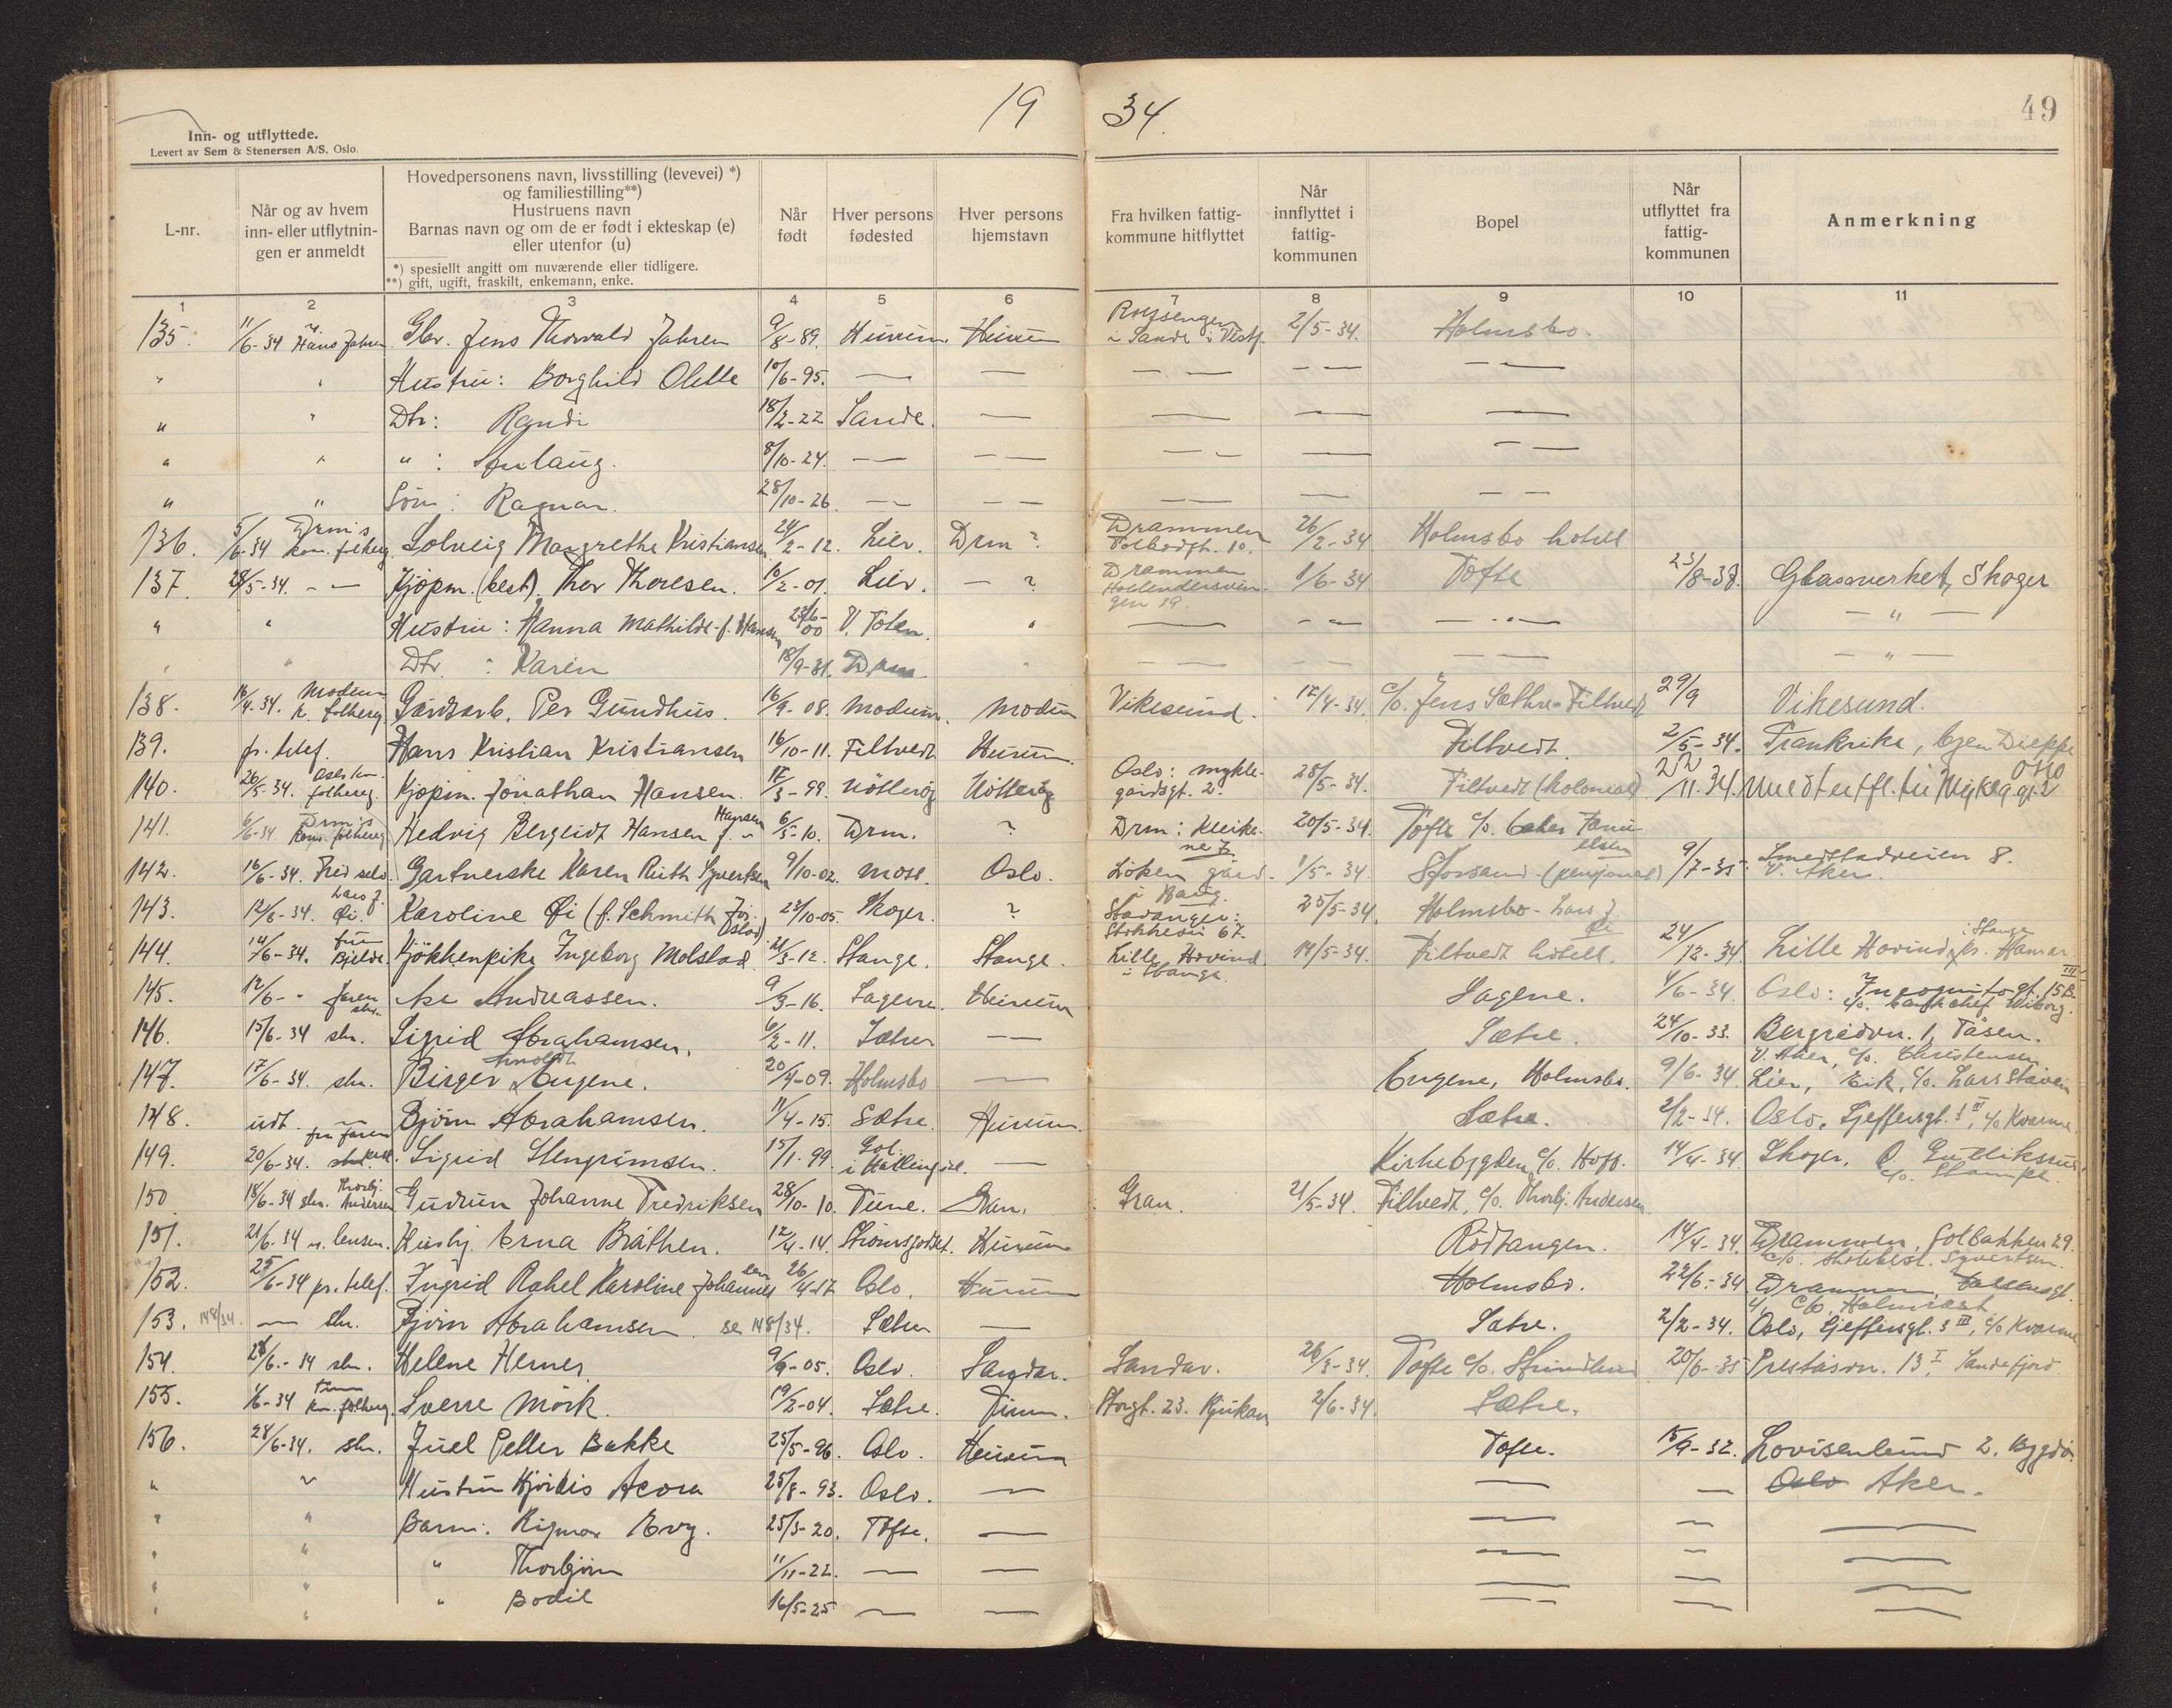 Inn- og utflyttede.
Levert av Sem & Stenersen A/S, Oslo.
19 34.
49
L-nr.
Når og av hvem inn- eller utflytningen er anmeldt
Hovedpersonens navn, livsstilling (levevei) *)
og familiestilling**)
Hustruens navn
Barnas navn og om de er født i ekteskap (e)
eller utenfor (u)
*) spesiellt angitt om nuværende eller tidligere.
**) gift, ugift, fraskilt, enkemann, enke.
Når født
Hver persons fødested
Hver persons hjemstavn
Fra hvilken fattigkommune hitflyttet
Når innflyttet i fattigkommunen
Bopel
Når utflyttet fra fattigkommunen
Anmerkning
1 2 3 4 5 6 7 8 9 10 11
135. 11/6-34 Hans Jahren Gbr. Jens Thorvald Jahren 9/8-89. Hurum. Hurum i Sande i Vestf. 2/5-34. Holmsbo.
" " Hustru: Borghild Olette 10/6-95. — — — — —
" " Dtr: Randi 18/2-22 Sande. — — — —
" " " : Anlaug. 8/10-24. — — — — —
" " Sön: Ragnar. 28/10-26 — — — — —
136. 5/6-34 Drm's kom. folkereg. Solveig Margrethe Kristiansen 24/2-12. Lier. Drm ? Drammen Tolbodgt. 10. 26/2-34 Holmsbo hotell.
137. 28/5-34. — Kjöpm. (best). Thor Thoresen. 10/2-01. Lier. — ? Drammen Hollendersvingen 19. 1/6-34 Tofte 23/8-38. Glassverket, Skoger
" " Hustru: Hanna Mathilde f. Hansen 23/6-00 V. Toten. " — — — — " —
" " Dtr. : Karin 18/9-31. Drm " — — — — " —
138. 16/4-34. Modum k. folkereg. Gårdsarb. Per Gundhus. 16/9-08. Modum. Modum Vikesund. 17/4-34. c/o. Jens Sæthre Filtvedt 29/9 Vikesund.
139. pr. telef. Hans Kristian Kristiansen 16/10-11. Filtvedt Hurum. Filtvedt. 2/5-34. Frankrike, byen Dieppe
140. 26/5-34. Oslo kom. folkereg. Kjöpm. Jonathan Hansen. 17/3-99. Nötteröy Nötteröy Oslo: Myklegårdsgt. 2. 28/5-34. Filtvedt (kolonial) 22/11.34. Meldt utfl. til Mykleg. gt. 2 Oslo
141. 6/6-34. Drm's kom. folkereg. Hedvig Bergliot Hansen f. Hansen 6/5-10. Drm. ? Drm: Kleikene 7 20/5-34. Tofte c/o.
142. 16/6-34. Fred selv. Gartnerske Karen Ruth Syvertsen 9/10-02. Moss. Oslo. Löken gård i Haug. 1/5-34. Storsand (pensjonat) 9/7-35 Smedstadveien 8. V. Aker.
143. 12/6-34. Lars J. Öi. Karoline Öi (f. Schmith Oslo) 23/10-05. Skoger. ? Stavanger: Stokkevei 67. 25/5-34. Holmsbo - Lars J. Öi
144. 14/6-34. fru Bjelde. Kjökkenpike Ingeborg Molstad. 21/3-12. Stange. Stange. Lille Hovind i Stange. 14/5-34. Filtvedt hotell. 24/12-34. Lille Hovind i Stange pr. Hamar
145. 12/6- " faren Åse Andreassen. 9/3-16. Sagene. Hurum Sagene. 4/6-34. Oslo: Incognitogt. 15 B. III c/o. banksjef Wiborg.
146. 15/6-34 skr. Sigrid Abrahamsen. 6/2-11. Sætre — Sætre. 24/10-33. Bergredvn. 1, Tåsen. V. Aker, c/o. Christensen
147. 17/6-34. skr. Birger Arnoldt Engene. 20/4-09. Holmsbo — Engene, Holmsbo. 9/6-34. Lier, Eik, c/o. Lars Stáven
148. udt. — Björn Abrahamsen. 11/4-15. Sætre. Hurum. Sætre. 2/2-34. Oslo, Gjeffersgt. 3 III, c/o Kvarme.
149. 20/6-34. Sigrid Stengrimsen. 15/1-99. Gol. i Hallingdal. — Kirkebygden, c/o. Hoff. 14/4-34 Skoger, c/o. Stampe.
150 18/6-34 skr. Thorbj. Andersen Gudrun Johanne Fredriksen 28/10-10. Tune. Gran. Gran. 21/5-34. Filtvedt, c/o. Thorbj. Andersen
151. 21/6-34 Husbj. Erna Bråthen. 12/4-14. Strömsgodset. Hurum Rödtangen. 14/4-34. Drammen, Solbakken 29. c/o. Syvertsen.
152. 25/6-34 pr. telef. Ingrid Rakel Karoline Johannessen 26/4-17 Oslo. Hurum Holmsbo. 22/6-34 Drammen, c/o, Holmrast
153. 148/34. — skr. Björn Abrahamsen. se 148/34. Sætre — Sætre. 2/2-34. Oslo, Gjeffersgt. 3 III, c/o Kvarme
154. 28/6-34 skr. Helene Herner 9/9-05. Oslo. Sandar. Sandar. 26/3-34. Tofte c/o. Strindlund 20/6-35 Preståsvn. 13 I, Sandefjord
155. 1/6-34 Tinn kom. folkereg. Sverre Mörk. 19/2-04. Sætre. Tinn. Storgt. 23. Rjukan 2/6-34. Sætre.
156. 28/6-34. skr. Juel Petter Bakke 25/5-96. Oslo. Hurum Tofte. 15/9-32. Lovisenlund 2. Bygdö.
" " Hustru Hjördis Acora 25/8-93. Oslo. — — — Oslo Aker.
" " Barn: Rigmor Evy. 25/3-20. Tofte. — — — —
" " " Thorbjörn 11/11-22. — — — — —
" " " Bodil 16/5-25 — — — — —